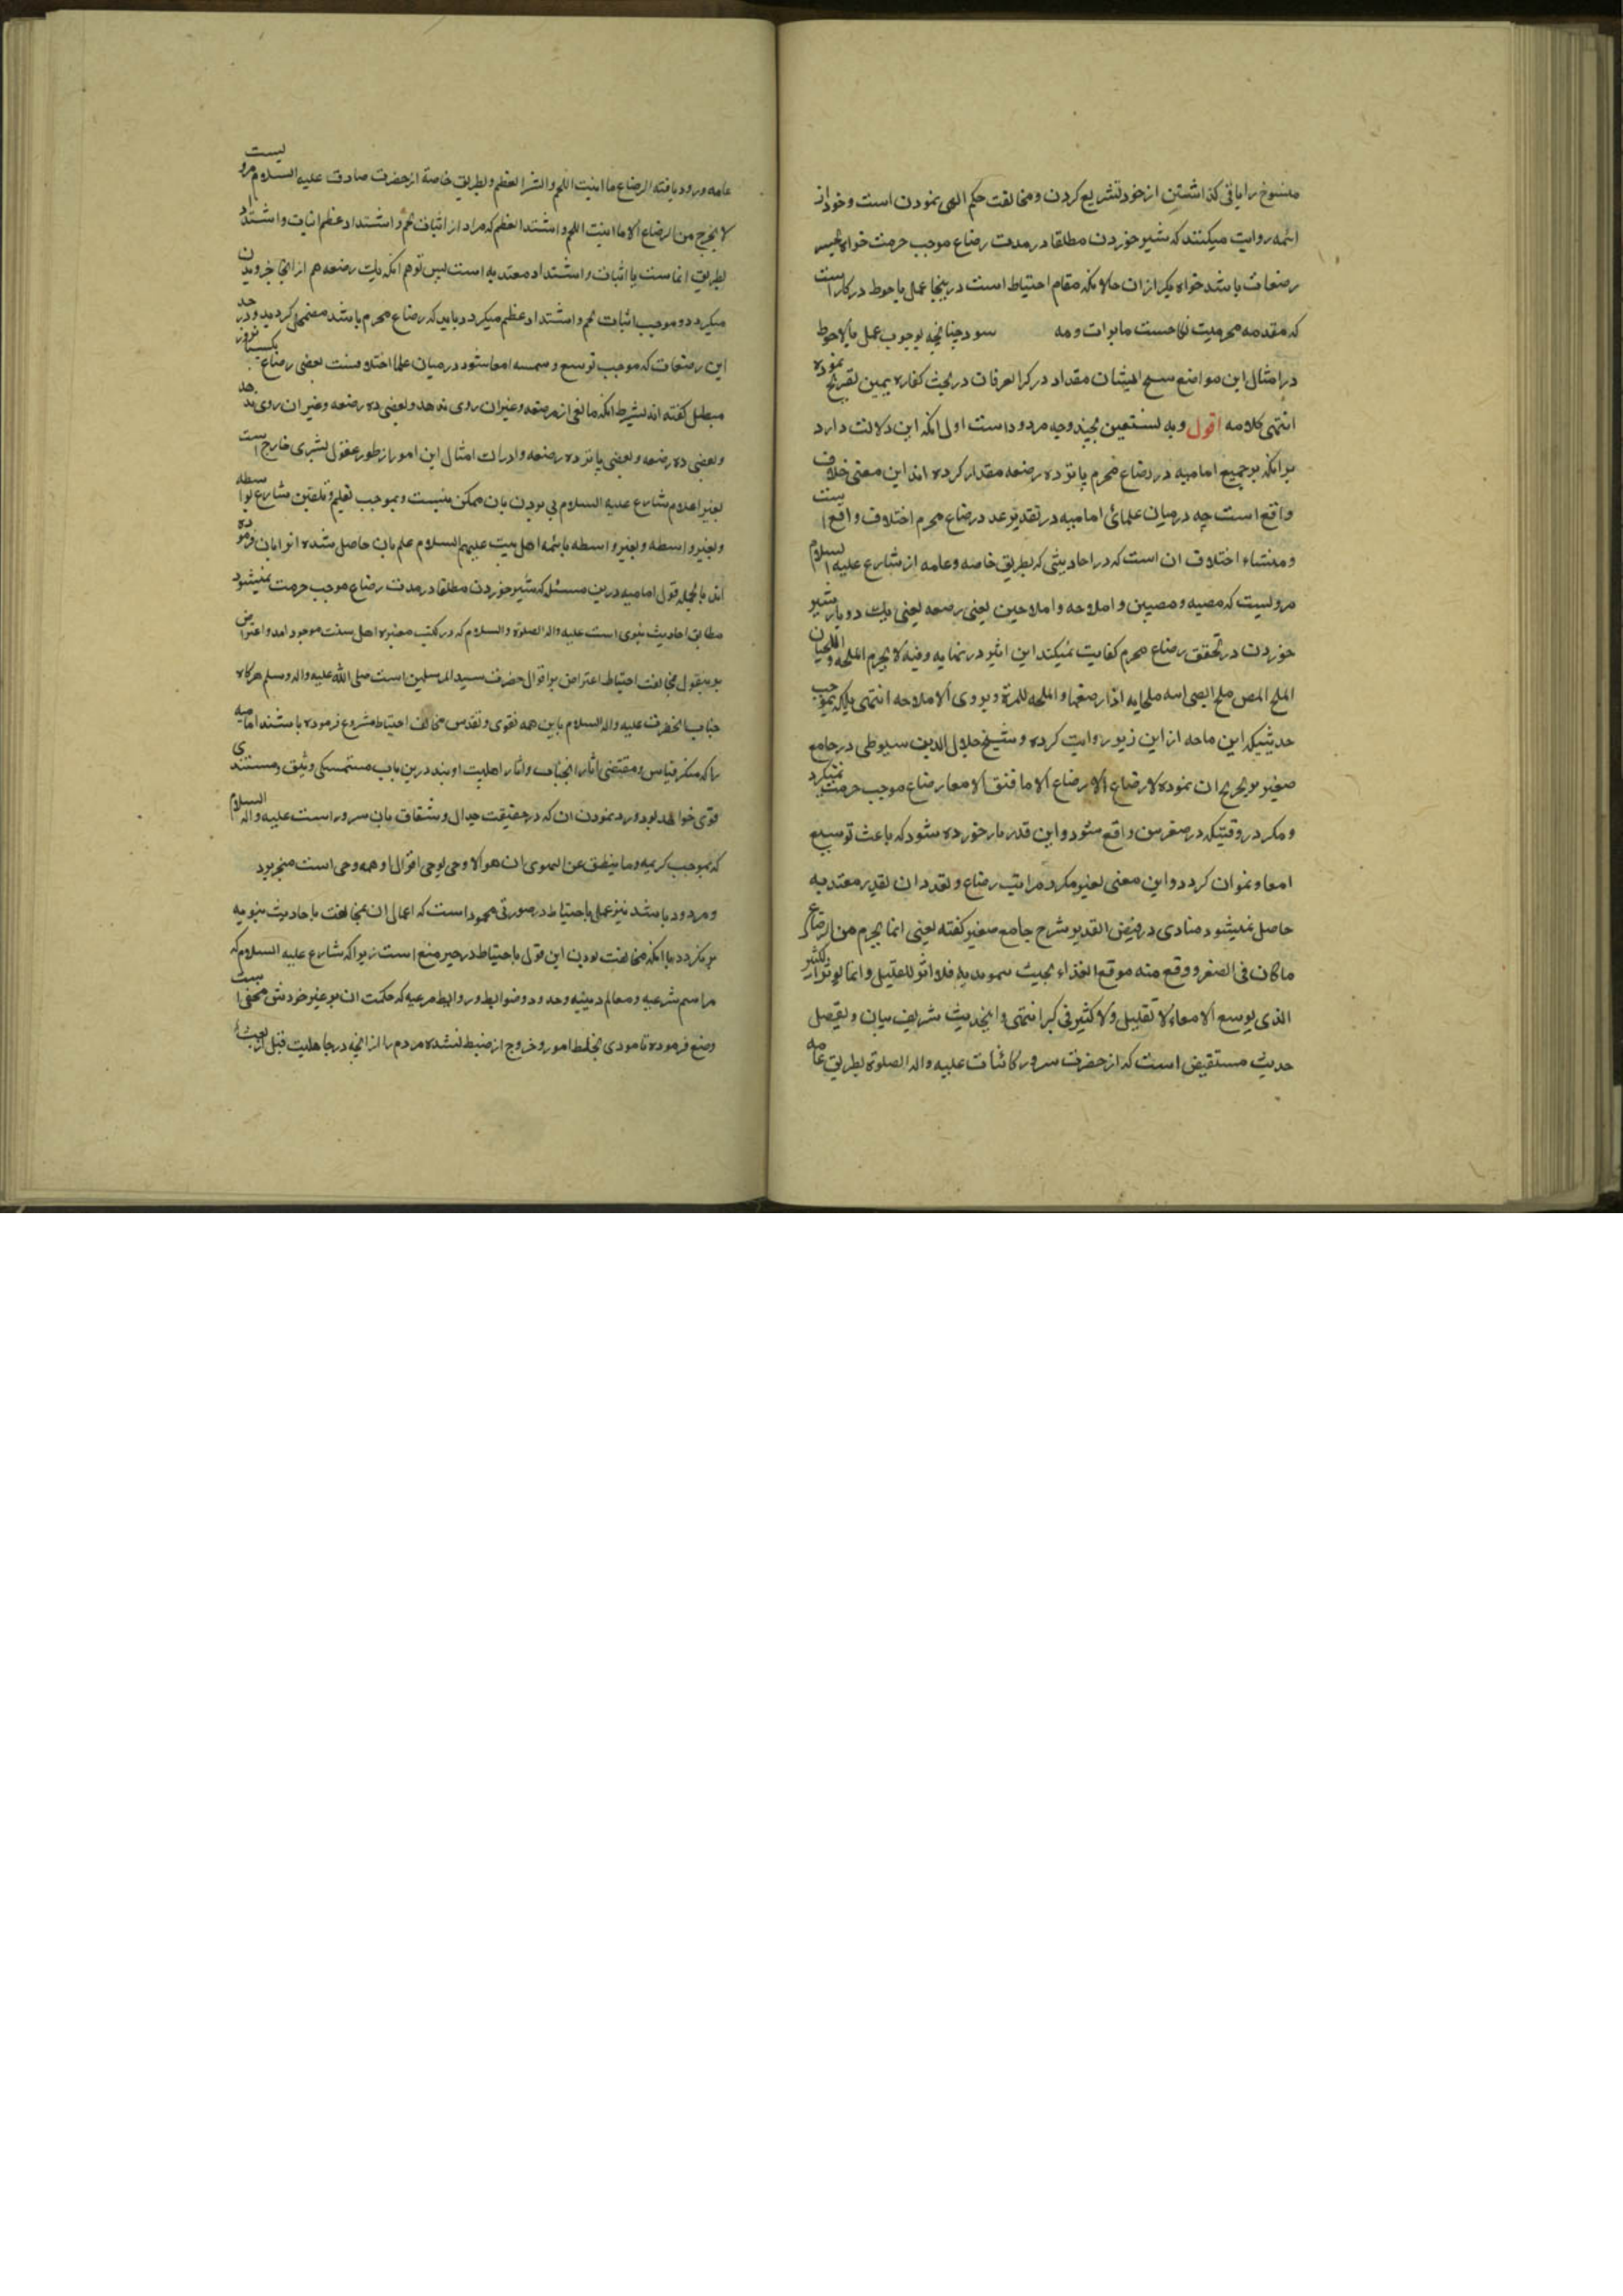 منسوخ را باقی گذاشتن از خود تشریع کردن و مخالفت حکم الهی نمودن است و خود از
ائمه روایت میکنند که شیر خوردن مطلقا در مدت رضاع موجب حرمت خواه
رضعات باشد خواه یکی ازان حالانکه مقام احتیاط است در بنجا عمل باحوط در کار است
که مقدمه محرمیت نکاحست و مه سود چنانچه بوجوب عمل بالاحوط
در امثال این مواضع ایشان مقداد در کنز العرفان در بحث کفاره یمین تصریح نموده
انتهی کلامه اقول و به نستعین بچند وجه مردود است اول انکه این دلالت دارد
بر انکه جمیع امامیه در رضاع محرم پانزده رضعه مقدار کرده اند این معنی خلاف
واقع است چه درمیان علمائ امامیه در تقدیر عدد رضاع محرم اختلاف واقع است
و منشاء اختلاف ان است که در احادیثی که بطریق خاصه و عامه از شارع علیه السلام
مرویست که مصیه و مصیین و املاحه و املاحین یعنی رضعه یعنی یک دو بار شیر
خوردن در تحقق رضاع محرم کفایت نمیکند ابن اثیر در نهایه وفیه لا یحرم الملحه و الملحتان
الملح المص ملح الصبی امه اذا رضعها و الملحه للمرة و یروی الاملاحه انتهی بلکه بموجب
حدیثیکه ابن ماجه از ابن زبیر روایت کرده و شیخ جلال الدین سیوطی در جامع
صغیر تخریج ان نموده لا رضاع الا رضاع الا ما فتق الامعا رضاع موجب حرمت نمیگردد
و مگر در وقتیکه در صغر سن واقع شود و این قدر بار خورده شود که باعث توسیع
امعا و نمو ان گردد و این معنی بغیر مکرر مراتب رضاع و تعدد ان بقدر معتد به
حاصل نمیشود مناوی در فیض القدیر شرح جامع صغیر گفته یعنی انما یحرم من الرضاع
ما کان فی الصغر و وقع منه موقع الغذاء بحیث بدنه فلا اثر للقلیل و انما یوثر الکثیر
الذی یوسع الامعاء لا تقلیل ولا کثیر فی کبر انتهی و اینحدیث شریف بیان و تفصیل
حدیث مستفیض است که از حضرت سرور کائنات علیه و اله الصلوة بطریق عامه
عامه ورود یافته الرضاع ما انبت اللحم و انشز العظم و بطریق خاصة از حضرت صادق علیه السلام مرویست
لا یحرم من الرضاع الا ما انبت اللحم و اشتد العظم که مراد از انبات لحم و اشتداد عظم انبات و اشتداد
بطریق است یا انبات و اشتداد معتد به است پس توهم انکه یک رضعه هم از انجا جزو بدن
میگردد و موجب انبات لحم و اشتداد عظم میگردد باید که رضاع محرم باشد مضمحل گردید و در حد
این رضعات که موجب توسع امعا شود درمیان علما اختلافست بعضی رضاع یک شبانروز
گفته اند بشرط انکه مانعی از مرضعه و غیر ان روی ندهد و بعضی ده رضعه و غیر ان روی ندهد
و بعضی ده رضعه و بعضی پانزده رضعه و ادراک امثال این امور از طور عقول بشری خارج است
بغیر اعلام شارع علیه السلام پی بردن بان ممکن نیست و بموجب تعلیم و تلقین شارع بواسطه
و بغیر واسطه و بغیر واسطه بائمه اهل بیت علیهم السلام علم بان حاصل شده انرا بیان فرموده
اند بالجمله قول امامیه درین مسئله که شیر خوردن مطلقا در مدت رضاع موجب حرمت نمیشود
مطابق احادیث نبوی است علیه و اله الصلوة و السلام که در کتب معتبره اهل سنت موجود اند و اعتراض
بر بمخالفت احتیاط اعتراض بر اقوال حضرت سید المرسلین است صلی الله علیه و اله و سلم هرگاه
جناب انحضرت علیه و اله السلام باین همه تقوی و تقدس مخالف احتیاط مشروع فرموده باشند امامیه
را که منکر قیاس و مقتفی اثار انجناب و اثار اهلبیت اویند درین باب مستمسکی وثیق و مستندی
قوی خواهد بود و رد نمودن ان که در حقیقت جدال و شقاق بان سرور است علیه و اله السلام
که بموجب کریمه و ما ینطق عن الهوی ان هو الا وحی یوحی اقوال او همه وحی است منجر برد
و مردود باشد نیز عمل باحتیاط در صورتی محمود است که اعمال ان بمخالفت باحادیث نبویه
نگردد با انکه مخالفت بودن این قول باحتیاط در حیز منع است زیرا که شارع علیه السلام که
مراسم شرعیه و معالم دینیه وحدود و ضوابط و روابط مرعیه که حکمت ان بر غیر خودش مخفی است
وضع فرموده تا مودی بخلط امور و خروج از ضبط نشده مردم را از انچه در جاهلیت قبل از بعثت